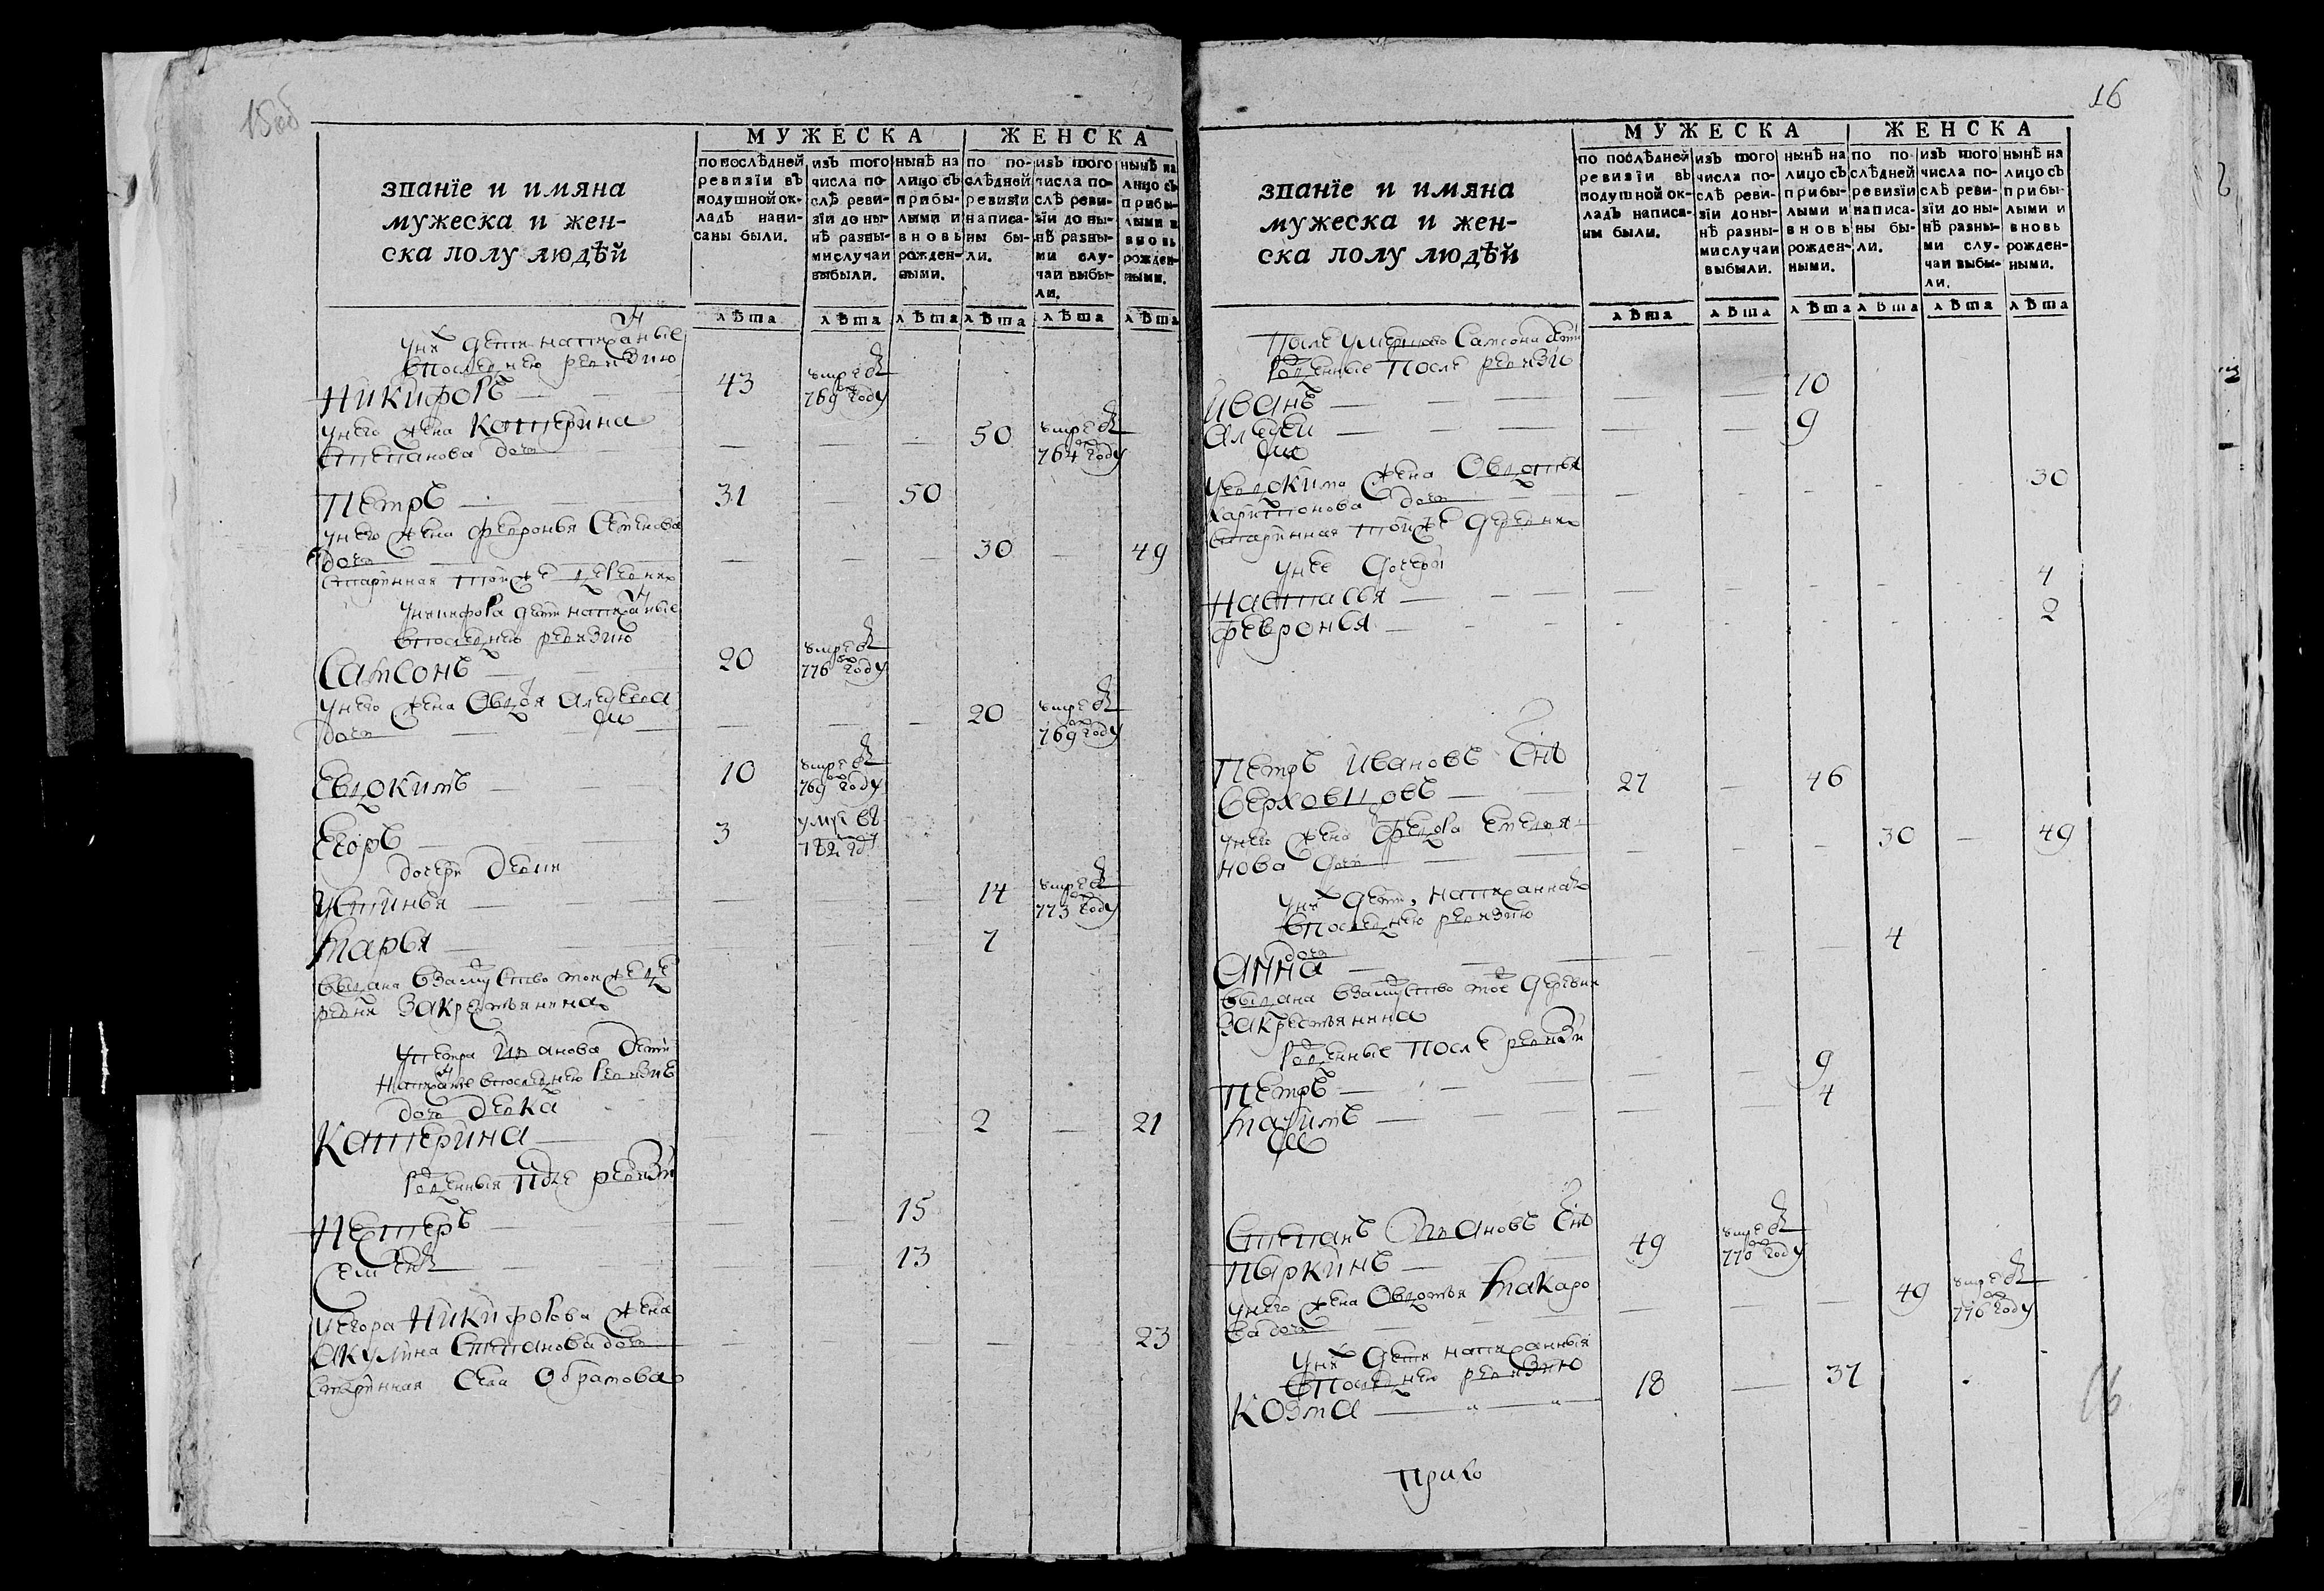 15об
МУЖЕСКА
ЖЕНСКА
званїе и имяна
мужеска и жен-
ска полу людѣй
по послѣдней
ревизїи въ
подушной ок-
ладъ напи-
саны были.
изъ того
числа по-
слѣ реви-
зїи до ны-
нѣ разны-
ми случаи
выбыли.
нынѣ на
лицо съ
прибы-
лыми и
вновь
рожден-
ными.
по по-
слѣдней
ревизїи
написа-
ны бы-
ли.
изъ того
числа по-
слѣ реви-
зїи до ны-
нѣ разны-
ми слу-
чаи выбы-
ли.
нынѣ на
лицо съ
прибы-
лыми и
вновь
рожден-
ными.
лѣта лѣта лѣта лѣта лѣта лѣта
У них дети написаные
в последнею ревизию
Никифоръ 43 умре въ
769 году
У него жена Катерина
Степанова дочь 50 умре въ
764 году
Петръ 31 50
У него жена Февронья Семенова
дочь 30 49
старинная той же деревни
У Никифора дети написаные
в последнею ревизию
Самсонъ 20 умре въ
776 году
У него жена Овдотя Алеѯеева
дочь 20 умре въ
769 году
Евдокимъ 10 умре въ
769 году
Егоръ 3 умре въ
782 году
дочери девки
Устинья 14 умре въ
773 году
Марья 7
выдана в замужство той же де
ревни за крестьянина
У Петра Иванова дети
написаные в последнею ревизие
дочь девка
Катерина 2 21
Рожденныя после ревизи
Нестеръ 15
Семенъ 13
У Егора Никифорова жена
Акулина Степанова дочь 23
старинная села Обрамова
16
МУЖЕСКА
ЖЕНСКА
званїе и имяна
мужеска и жен-
ска полу людѣй
по послѣдней
ревизїи въ
подушной ок-
ладъ написа-
ны были.
изъ того
числа по-
слѣ реви-
зїи до ны-
нѣ разны-
ми случаи
выбыли.
нынѣ на
лицо съ
прибы-
лыми и
вновь
рожден-
ными.
по по-
слѣдней
ревизїи
написа-
ны бы-
ли.
изъ того
числа по-
слѣ реви-
зїи до ны-
нѣ разны-
ми слу-
чаи выбы-
ли.
нынѣ на
лицо съ
прибы-
лыми и
вновь
рожден-
ными.
лѣта лѣта лѣта лѣта лѣта лѣта
умершаго Самсона дети
Рожденные после ревизи
Иванъ 10
Алеѯей 9
У Евдокима жена Овдотья
Харитонова дочь 30
старинная той же деревни
у нее дочери
Настасья 4
Февронья 2
Петръ Ивановъ снъ
Верховцовъ 27 46
У него жена Федора Емелья-
нова дочь 30 49
У них дети, написанная
в последнею ревизию
дочь
Анна 4
выдана в замужство той деревни
за крестьянина
Рожденные после ревизи
Петръ 9
Маѯимъ 4
Степанъ Ивановъ снъ
Паркинъ 49 умре въ
770 году
У него жена Овдотья Макаро
ва дочь 49 умре въ
776 году
У них дети написанныя
в последнею ревизию
Козма 18 37
16